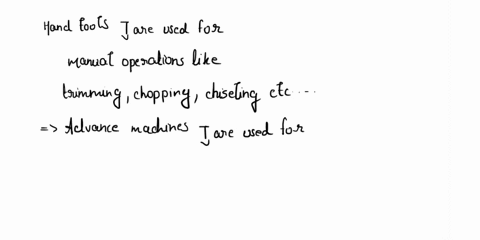 Hand tools ] are used for
manual operations like
trimming, chopping, chiseling etc ...
=> Advance machines ] are used for